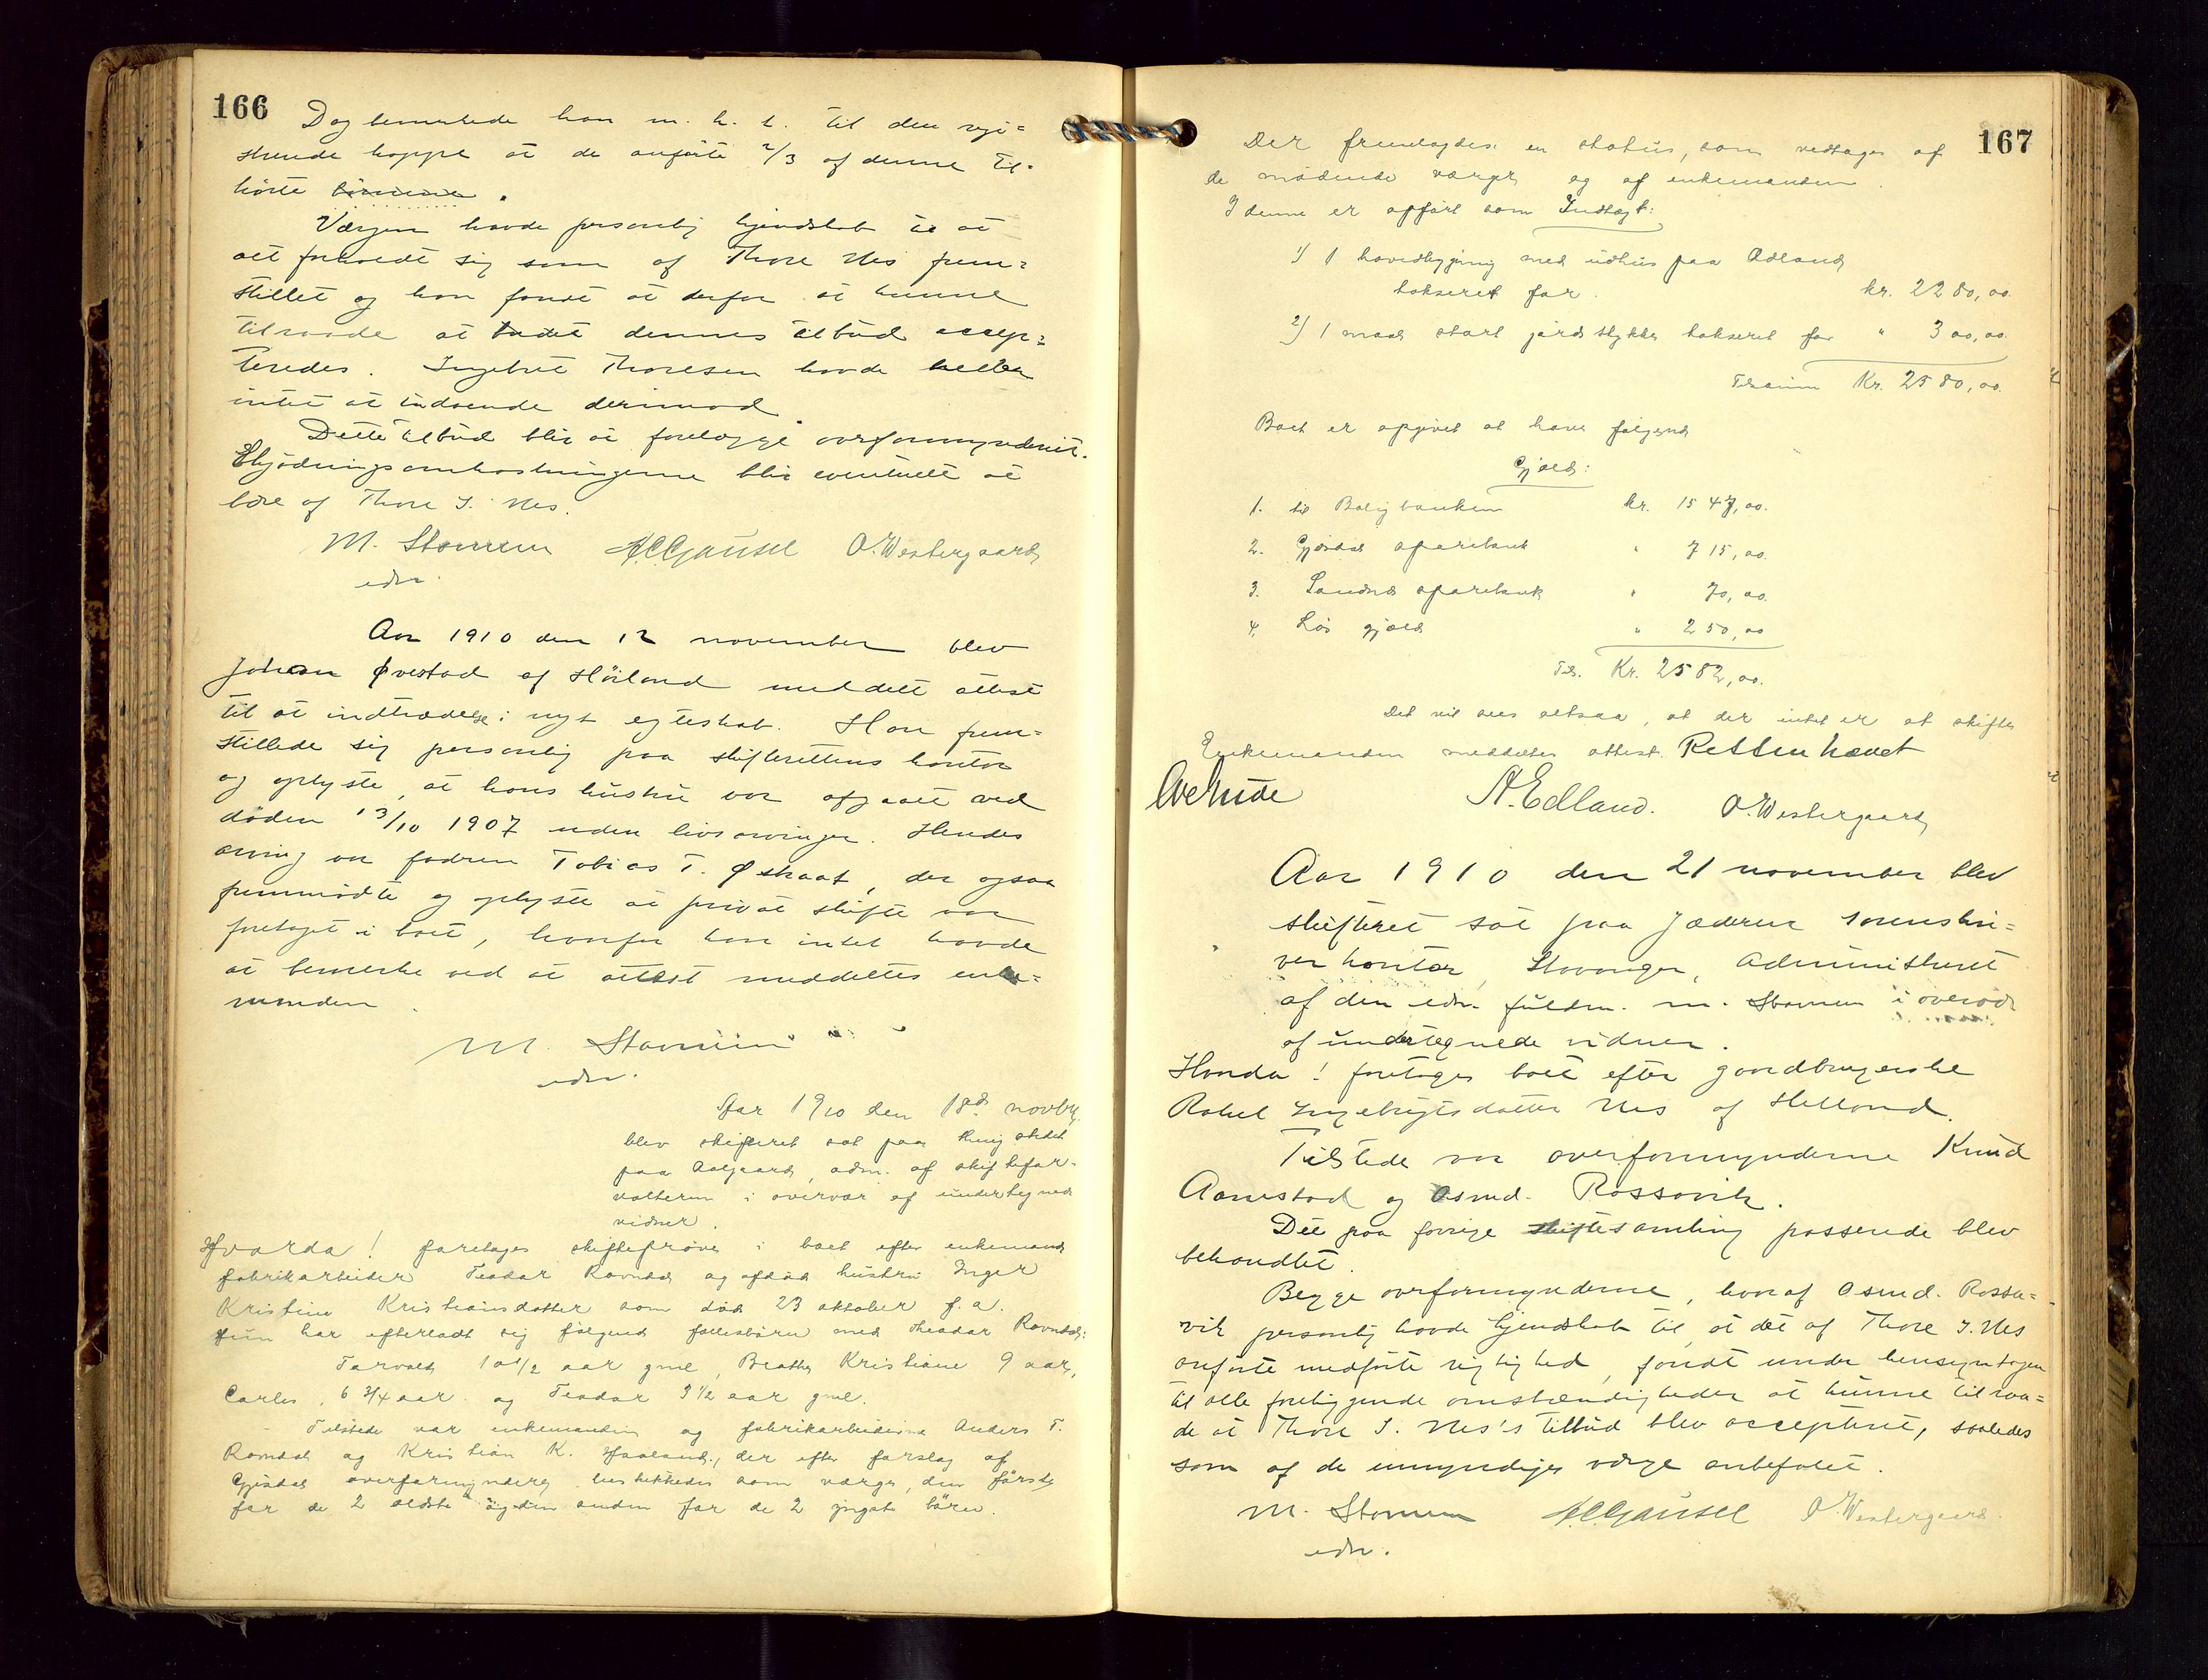 166
Dog bemerkede han m. h. t. til den
hoppe at de anførte 2/3 af denne til=
hørte børnene.
Vergen havde personlig kjendskab til at
alt forholdt sig som af Thore Nes frem=
stillet og han fandt at derfor at kunne
tilraade at budet dennes tilbud accep=
teredes. Ingebret Thoresen havde heller
intet at indvende derimod
Dette tilbud blir at forelægge overformynderiet.
Skjødningsomkostningerne blir eventuelt at
bære af Thore I. Nes.
M. Stamnen ACGausel O. Westergaard
edsv.
Aar 1910 den 12 november blev
Johan Øvestad af Høiland meddelt attest
til at indtrædelse i nyt egteskab. Han frem=
stillede sig personlig paa skifterettens kontor
og oplyste, at hans hustru var afgaaet ved
døden 13/10 1907 uden livsarvinger. Hendes
arving var fadren Tobias T. Øskaat, der ogsaa
fremmødte og oplyste at privat skifte var
foretaget i boet, hvorfor han intet havde
at bemerke ved at attest meddeltes enke=
manden.
M. Stamnen
edsv.
Aar 1910 den 18de novbr.
blev skifteret sat paa
paa Aalgaard, adm. af skiftefor=
valteren i overvær af undertegnede
vidner.
Hvorda! foretages skifteprøve i boet efter enkemand
fabrikarbeider Teodor Ravndal og afdød hustru Inger
Kristine Kristiansdatter som døde 23 oktober f. a.
Hun har efterladt sig følgende fællesbørn med Theodor Ravndal:
Torvald 10 1/2 aar gml, Beathe Kristiane 9 aar,
Carlos, 6 3/4 aar og Teodor 3 1/2 aar gml.
Tilstede var enkemanden og fabrikarbeiderne Anders T.
Ravndal og Kristian K. Haaland, der efter forslag af
Gjesdal overformyndere beskikkedes som værge, den første
for de 2 ældste og den anden for de 2 yngste børn.
167
Der fremlagdes en status, som vedtages af
de mødende værger og af enkemanden.
I denne er opført som Indtægt:
1) 1 hovedbygning med udhus paa Ødland
takseret for kr. 2280,00.
2) 1 maal stort jordstykke takseret for " 300,00.
Tilsammen Kr. 2580,00.
Boet er opgivet at have følgende
Gjæld:
1. til Boligbanken kr. 1547,00.
2. Gjesdal sparebank " 715,00.
3. Sandnes sparebank " 70,00.
4. Løs gjæld " 250,00
Tils. Kr. 2582,00.
Det vil sees altsaa, at der intet er at skifte
Enkemanden meddeltes attest. Retten hævet
A. Edland. O. Westergaard
Aar 1910 den 21 november blev
skifteret sat paa Jæderens sorenskri=
ver kontor, Stavanger, Administreret
af den edsv. fuldm. M. Stamnen i overvær
af undertegnede vidner.
Hvorda! foretages boet efter gaardbrugerske
Rakel Ingebrigtsdatter Nes af Helland.
Tilstede var overformynderne Knud
Aamestad og Asmd. Rossavik.
Det paa forrige skiftesamling passerede blev
behandlet.
Begge overformynderne, hvoraf Asmd. Rossa=
vik personlig havde kjendskab til, at det af Thore I. Nes
anførte medførte rigtighed, fandt under hensyntagen
til alle foreliggende omstændigheder at kunne tilraa=
de at Thore I. Nes's tilbud blev accepteret, saaledes
som af de umyndiges værge anbefalet.
M. Stamnen ACGausel O. Westergaard.
edsv.